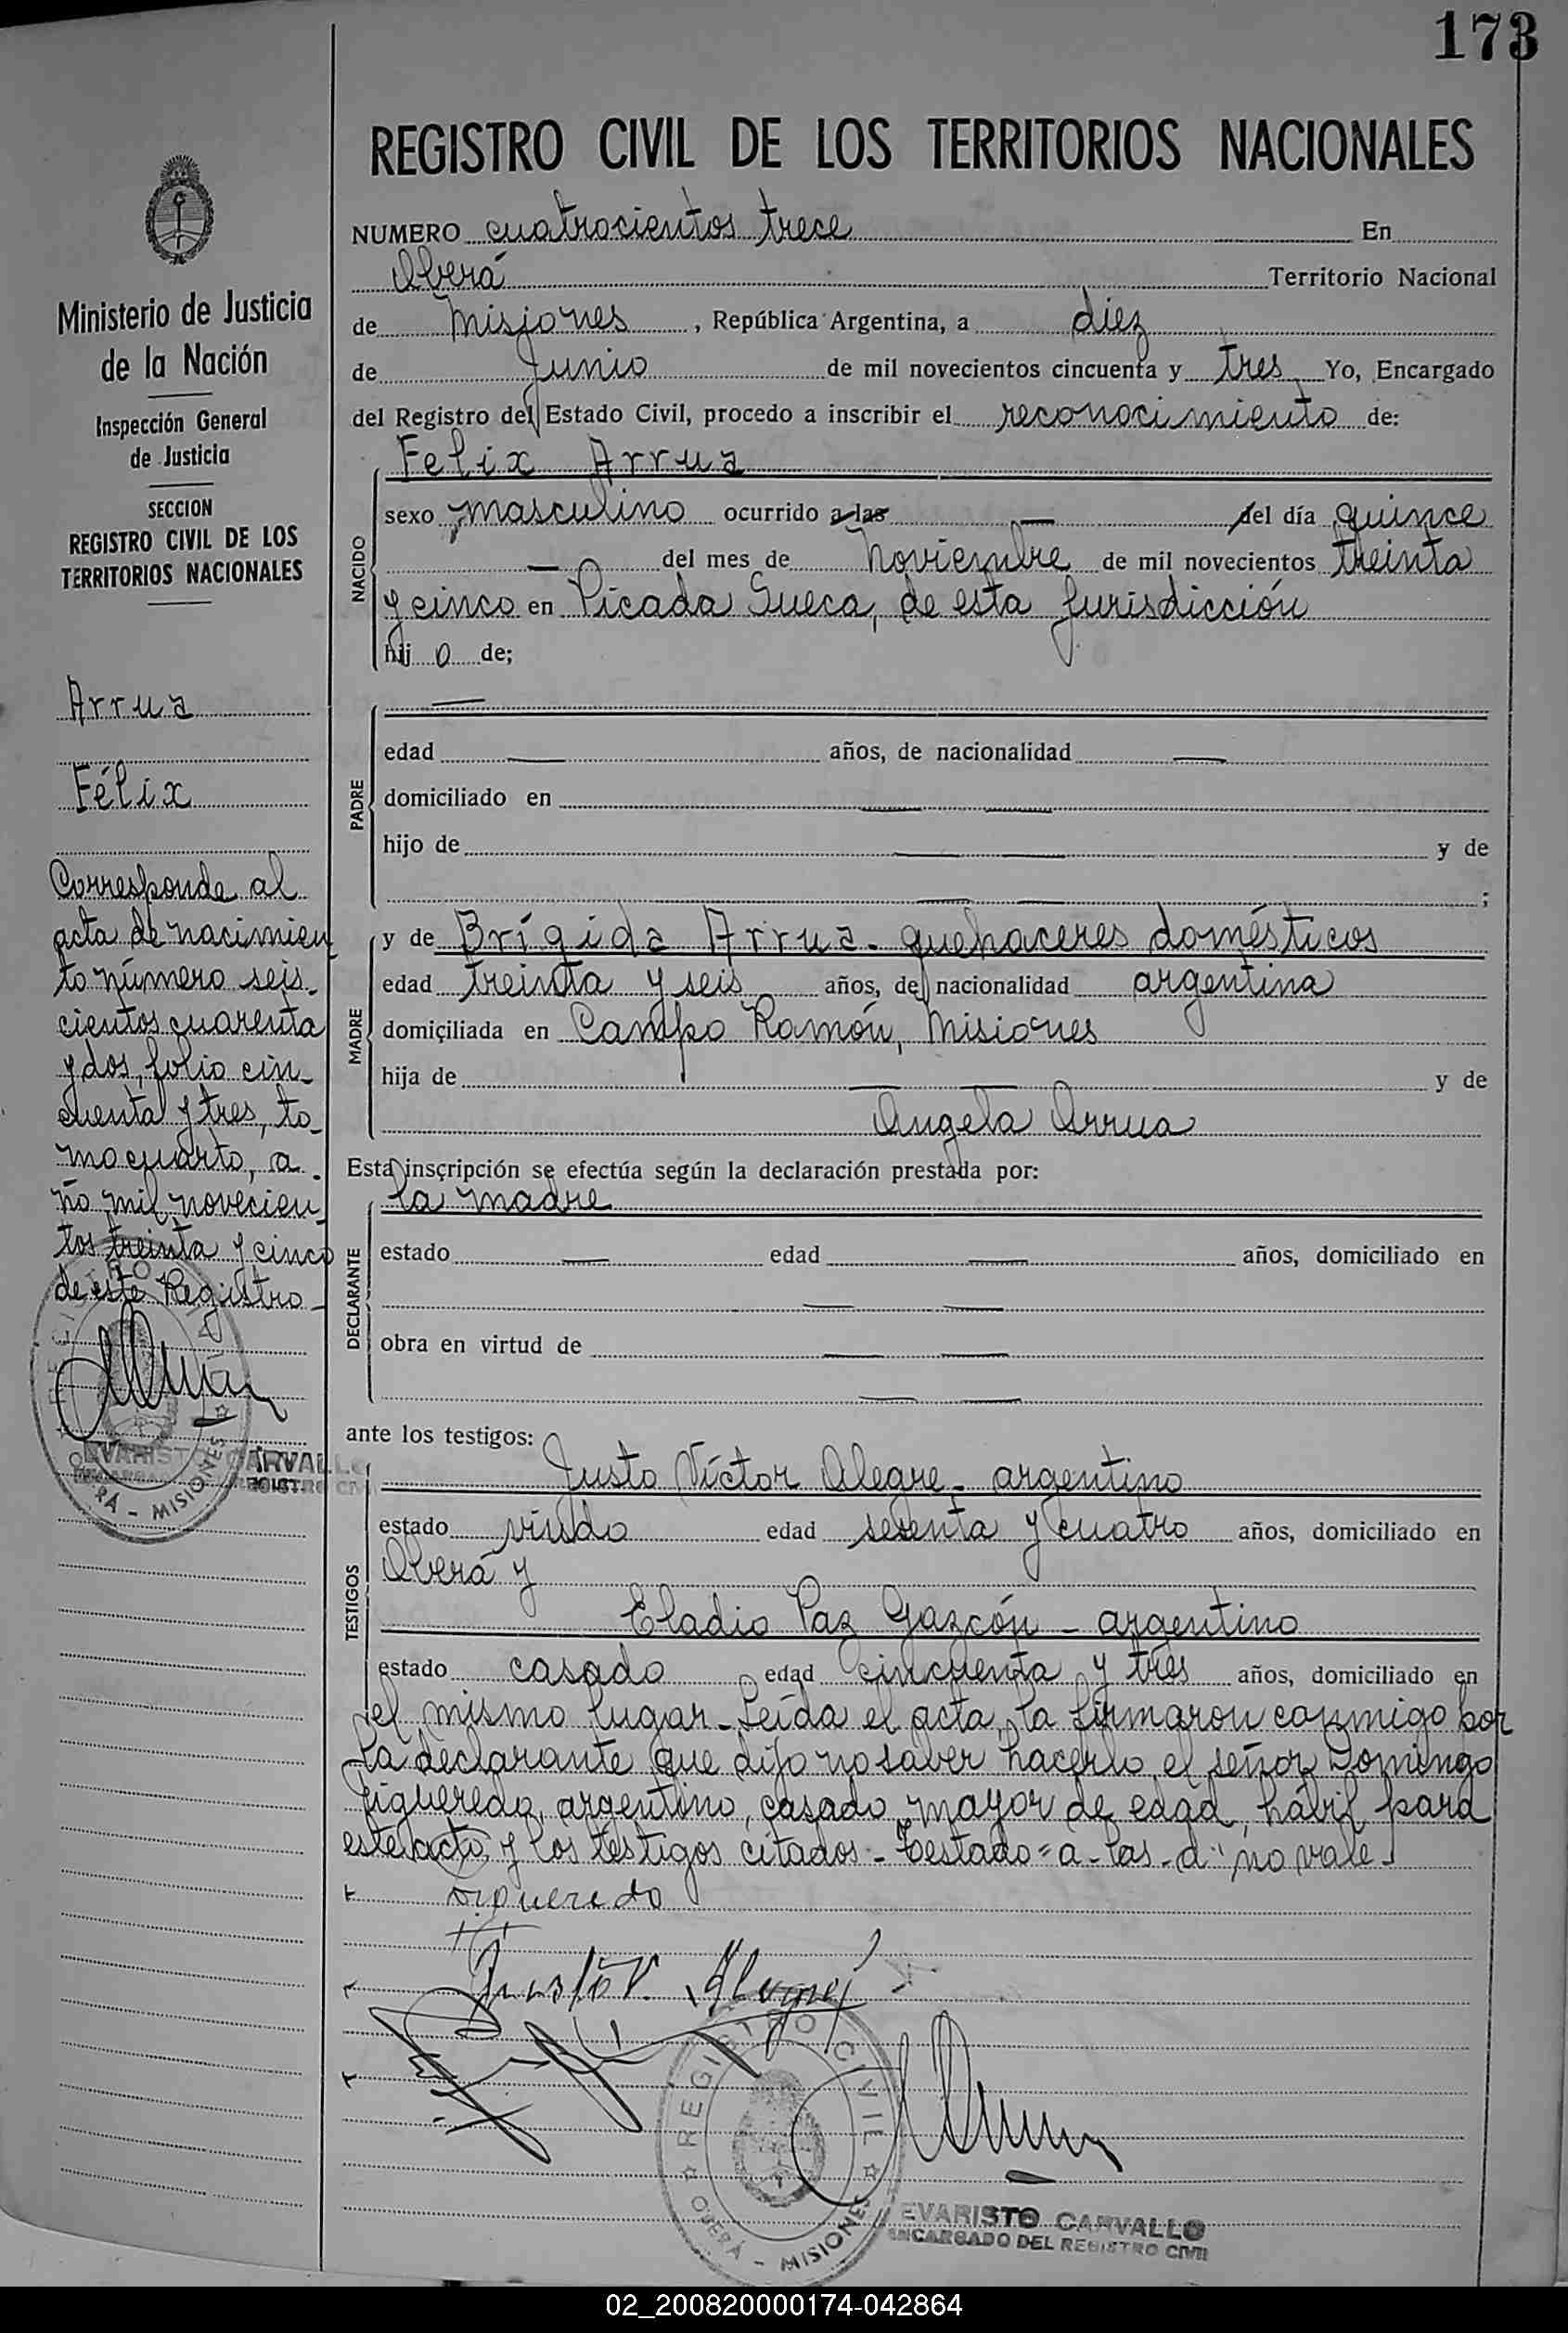 173
REGISTRO CIVIL DE LOS TERRITORIOS NACIONALES
NUMERO cuatrocientos trece En
Oberá Territorio Nacional
de Misiones, República Argentina, a diez
de Junio de mil novecientos cincuenta y tres Yo, Encargado
del Registro del Estado Civil, procedo a inscribir el reconocimiento de:
Felix Arrua
NACIDO
sexo masculino ocurrido a las — del día quince
— del mes de noviembre de mil novecientos treinta
y cinco en Picada Sueca, de esta jurisdicción
hij o de;
PADRE
—
edad — años, de nacionalidad —
domiciliado en — —
hijo de — — y de
— — ;
MADRE
y de Brígida Arrua - quehaceres domésticos
edad treinta y seis años, de nacionalidad argentina
domiciliada en Campo Ramón, Misiones
hija de — — y de
Angela Arrua
Esta inscripción se efectúa según la declaración prestada por:
DECLARANTE
la madre
estado — edad — años, domiciliado en
— —
obra en virtud de — —
— —
ante los testigos:
TESTIGOS
Justo Víctor Alegre - argentino
estado viudo edad sesenta y cuatro años, domiciliado en
Oberá y
Eladio Paz Gazcón - argentino
estado casado edad cincuenta y tres años, domiciliado en
el mismo lugar - Leída el acta, la firmaron conmigo por
la declarante que dijo no saber hacerlo el señor Domingo
Figueredo, argentino, casado, mayor de edad, hábil para
este acto, y los testigos citados - Testado = a - las - d" no vale -
Figueredo
Justo V. Alegre
REGISTRO CIVIL
OBERÁ - MISIONES
EVARISTO CARVALLO
ENCARGADO DEL REGISTRO CIVIL
Ministerio de Justicia
de la Nación
Inspección General
de Justicia
SECCION
REGISTRO CIVIL DE LOS
TERRITORIOS NACIONALES
Arrua
Félix
Corresponde al
acta de nacimien
to número seis-
cientos cuarenta
y dos, folio cin-
cuenta y tres, to-
mo cuarto, a-
ño mil novecien-
tos treinta y cinco
de este Registro -
OBERÁ - MISIONES
EVARISTO CARVALLO
REGISTRO CIVIL
02_200820000174-042864